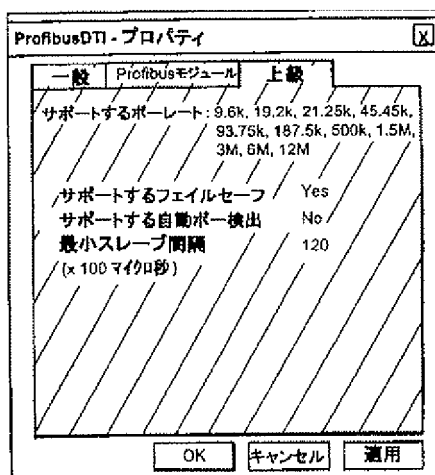 ProfibusDTI - プロパティ X
一般 Profibusモジュール 上級
サポートするボーレート: 9.6k, 19.2k, 21.25k, 45.45k,
93.75k, 187.5k, 500k, 1.5M,
3M, 6M, 12M
サポートするフェイルセーフ Yes
サポートする自動ボー検出 No
最小スレーブ間隔 120
(x 100 マイクロ秒)
OK キャンセル 適用